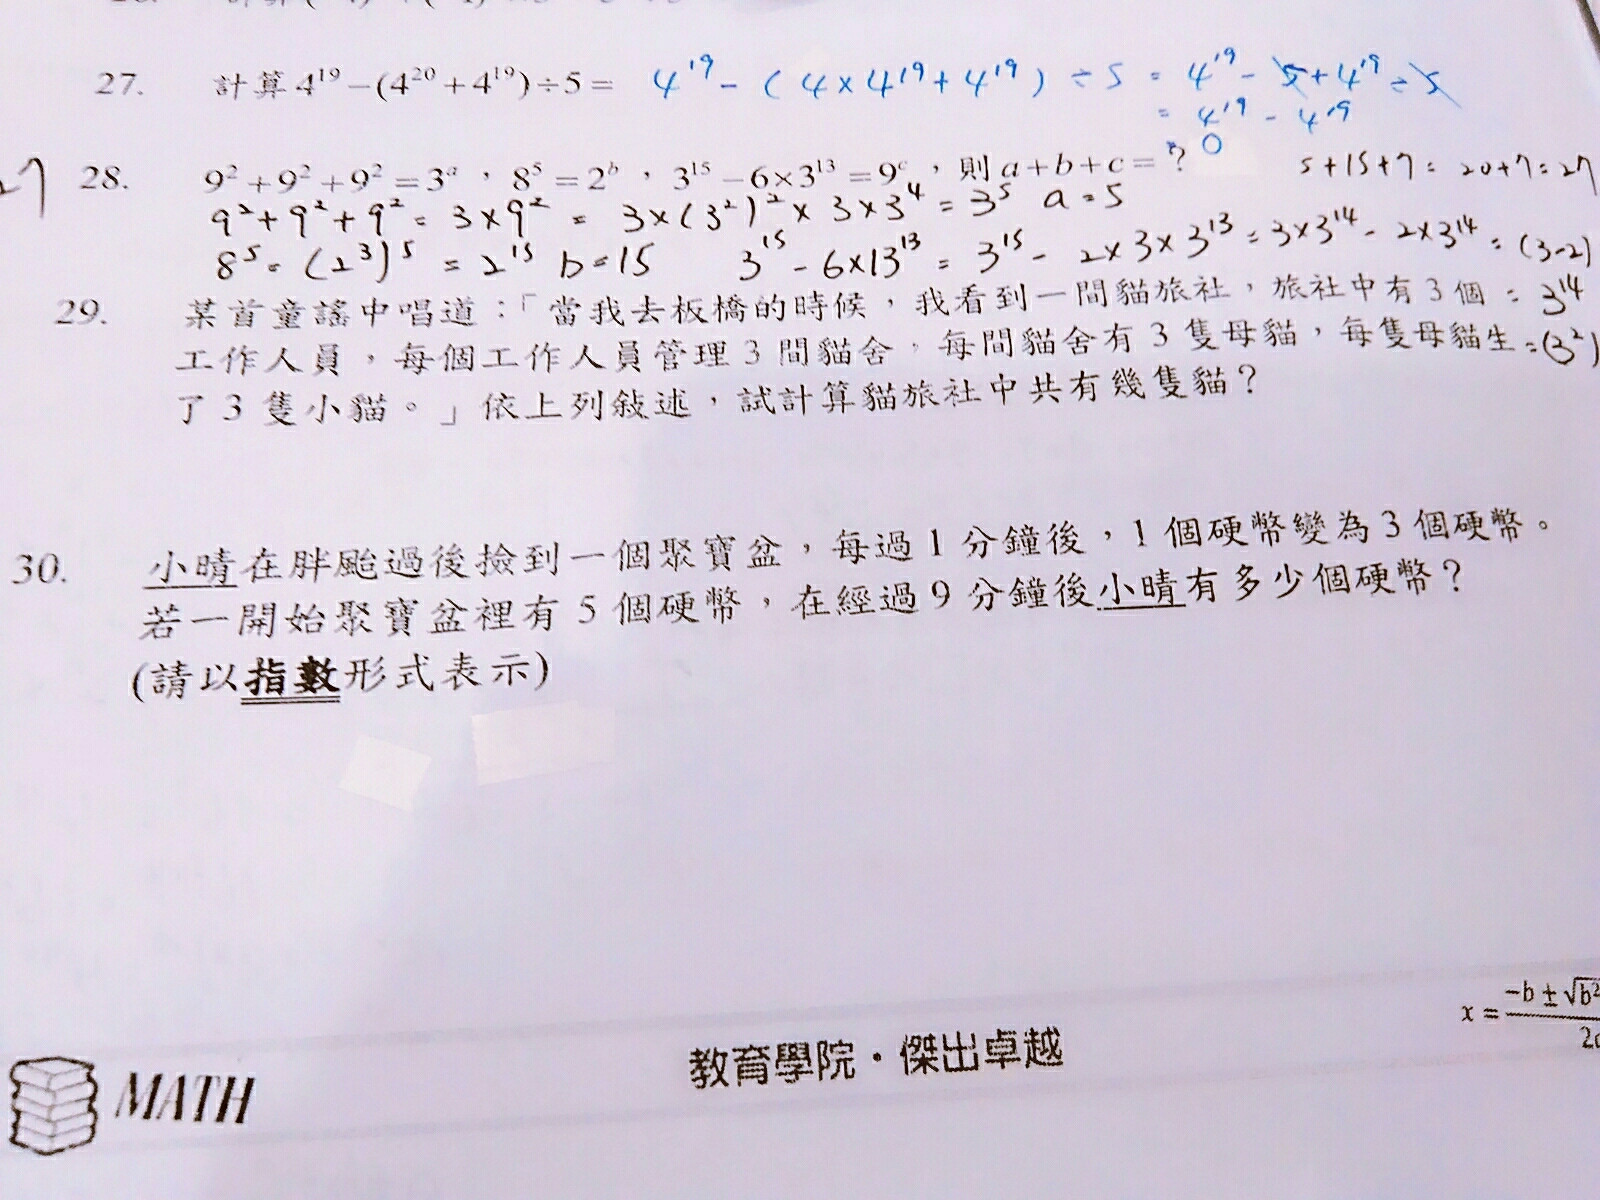 27. 計算 4¹⁹－(4²⁰＋4¹⁹)÷5＝ 4¹⁹ - (4×4¹⁹+4¹⁹) ÷5 = 4¹⁹ - 5+4¹⁹÷5
= 4¹⁹ - 4¹⁹
0
28. 9²＋9²＋9²＝3ᵃ，8⁵＝2ᵇ，3¹⁵－6×3¹³＝9ᶜ，則 a＋b＋c＝？ 5+15+7 = 20+7=27
9²+9²+9² = 3×9² = 3×(3²)² × 3×3⁴ = 3⁵ a=5
8⁵ = (2³)⁵ = 2¹⁵ b=15 3¹⁵-6×13¹³ = 3¹⁵ - 2×3×3¹³ = 3×3¹⁴ - 2×3¹⁴ = (3-2)
29. 某首童謠中唱道：「當我去板橋的時候，我看到一間貓旅社，旅社中有 3 個 = 3¹⁴
工作人員，每個工作人員管理 3 間貓舍，每間貓舍有 3 隻母貓，每隻母貓生 =(3²)
了 3 隻小貓。」依上列敍述，試計算貓旅社中共有幾隻貓？
30. 小晴在胖颱過後撿到一個聚寶盆，每過 1 分鐘後，1 個硬幣變為 3 個硬幣。
若一開始聚寶盆裡有 5 個硬幣，在經過 9 分鐘後小晴有多少個硬幣？
(請以指數形式表示)
x = -b ± √b²
2a
教育學院·傑出卓越
MATH